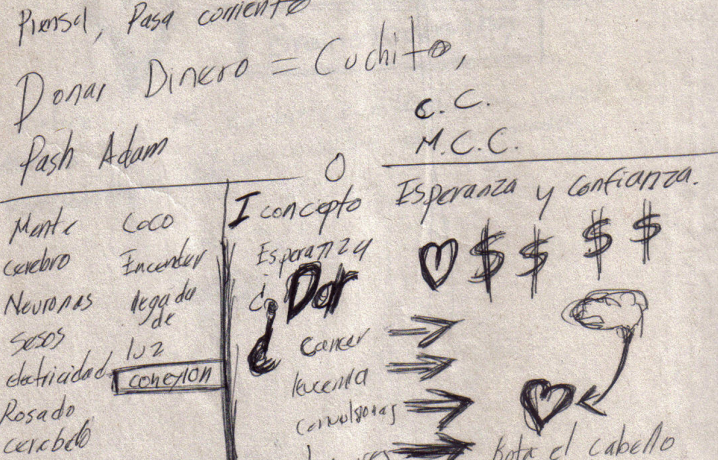 Piensa, Pasa corriente
Donar Dinero = Cuchito,
C.C.
Pash Adam
M.C.C.
O
Mente
cerebro
Neuronas
sesos
electricidad
Rosado
cerebelo
Coco
Encender
llegada
de
luz
conexion
I concepto
Esperanza
¿Dar
cancer
leucemia
convulsiones
Esperanza y confianza.
$ $ $ $
Bota el cabello